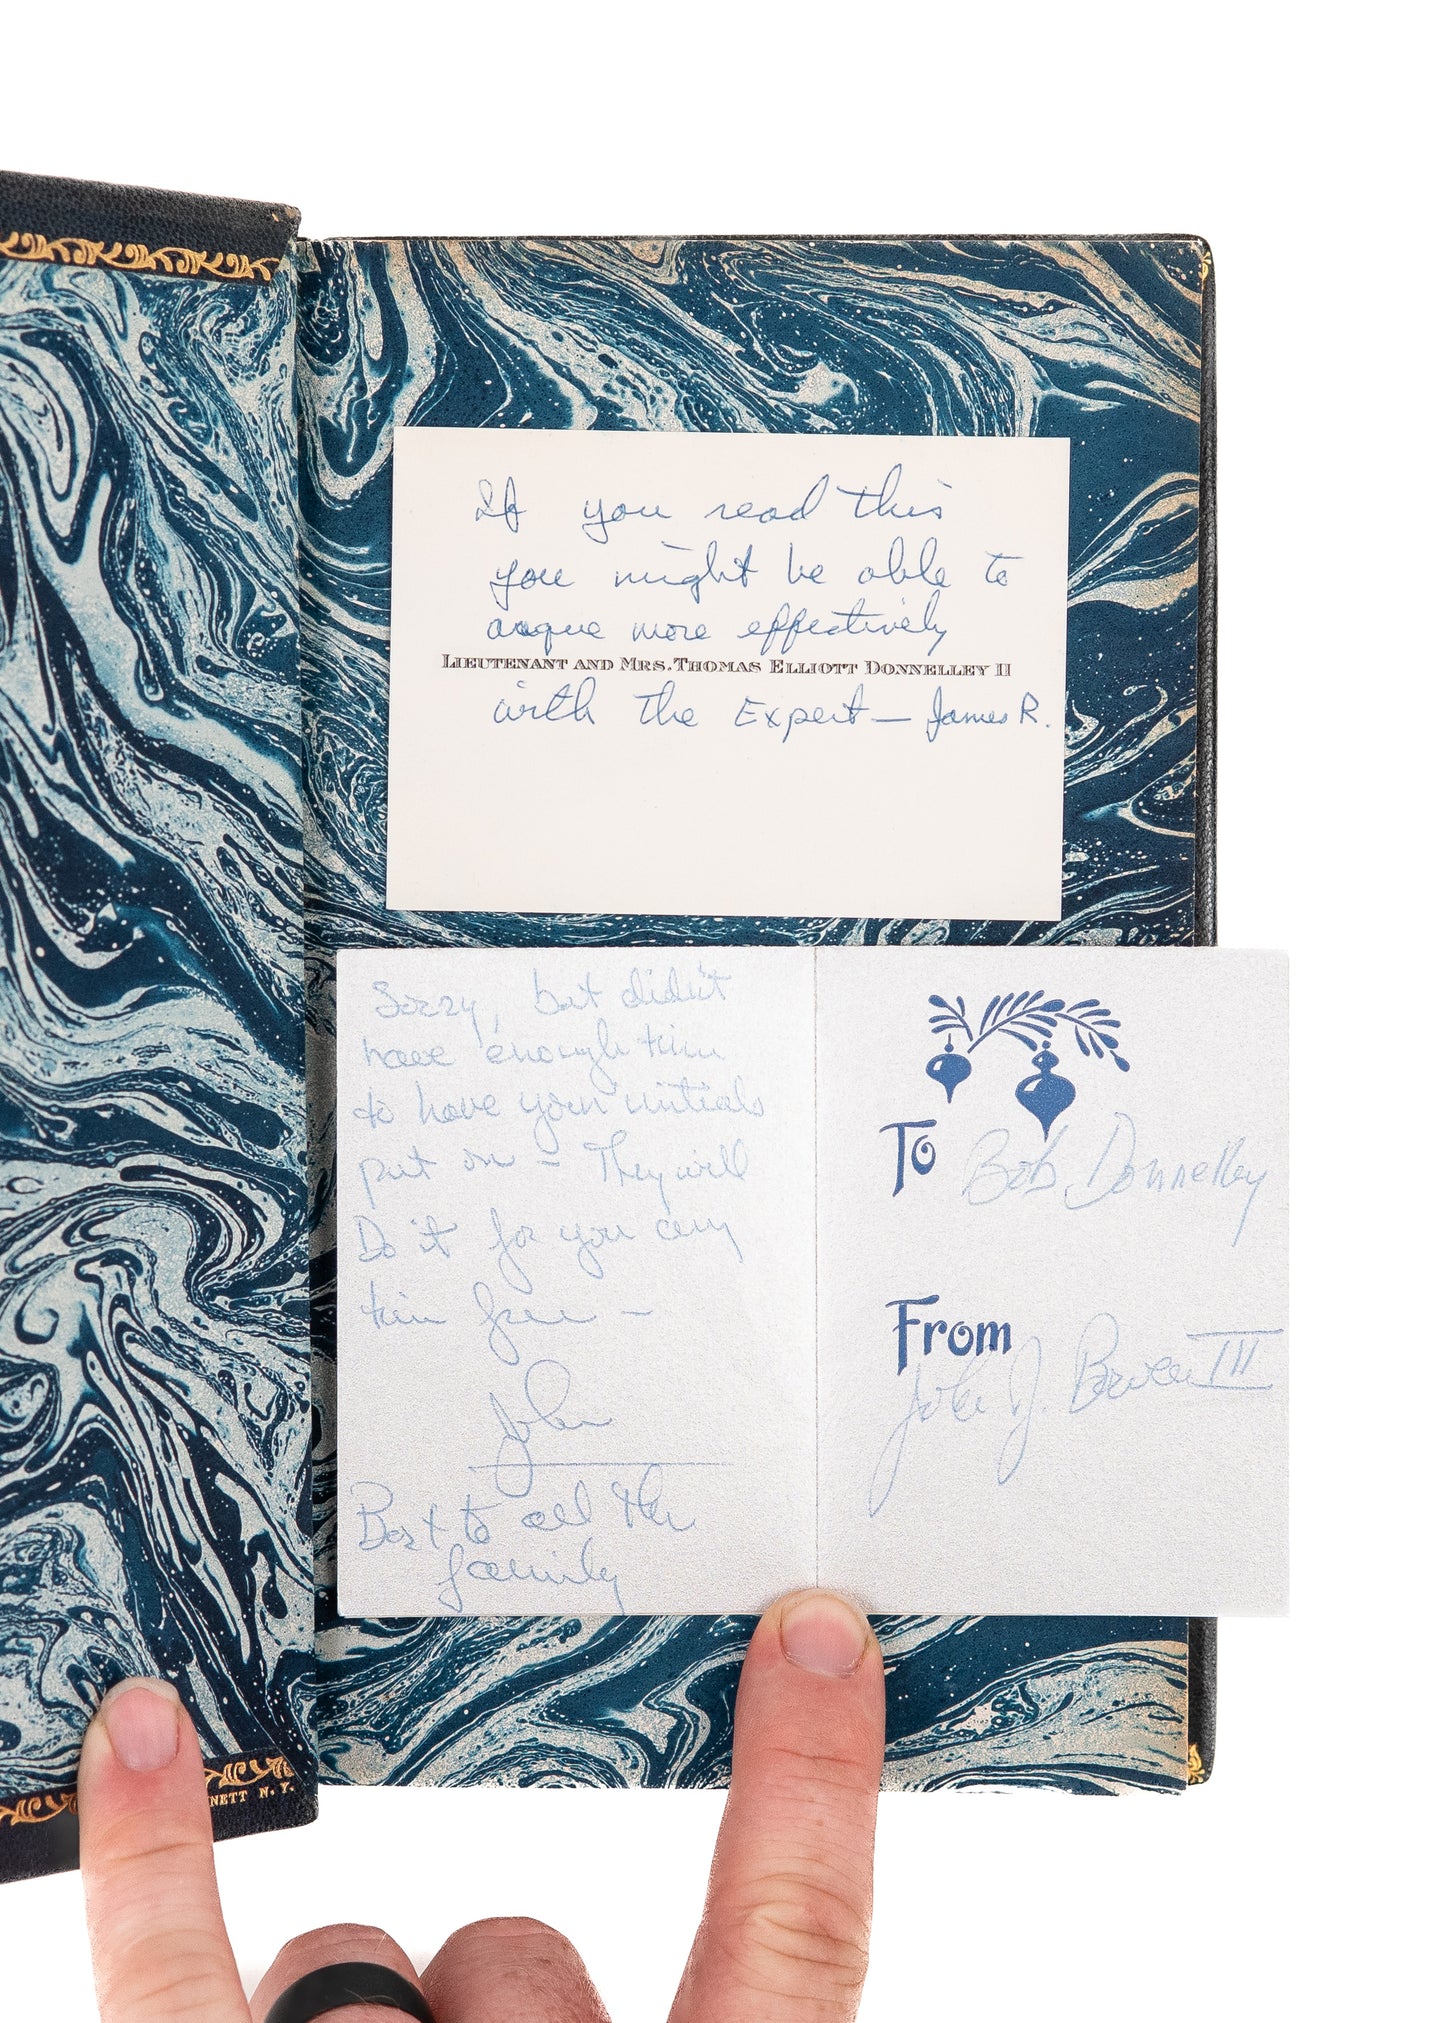 If you read this
you might be able to
argue more effectively
LIEUTENANT AND MRS. THOMAS ELLIOTT DONNELLEY II
with the Expert — James R.
Sorry, but didn't
have enough time
to have your initials
put on - They will
Do it for you any
time free -
John
Best to all the
family
To Bob Donnelley
From
John J. III
NETT N.Y.